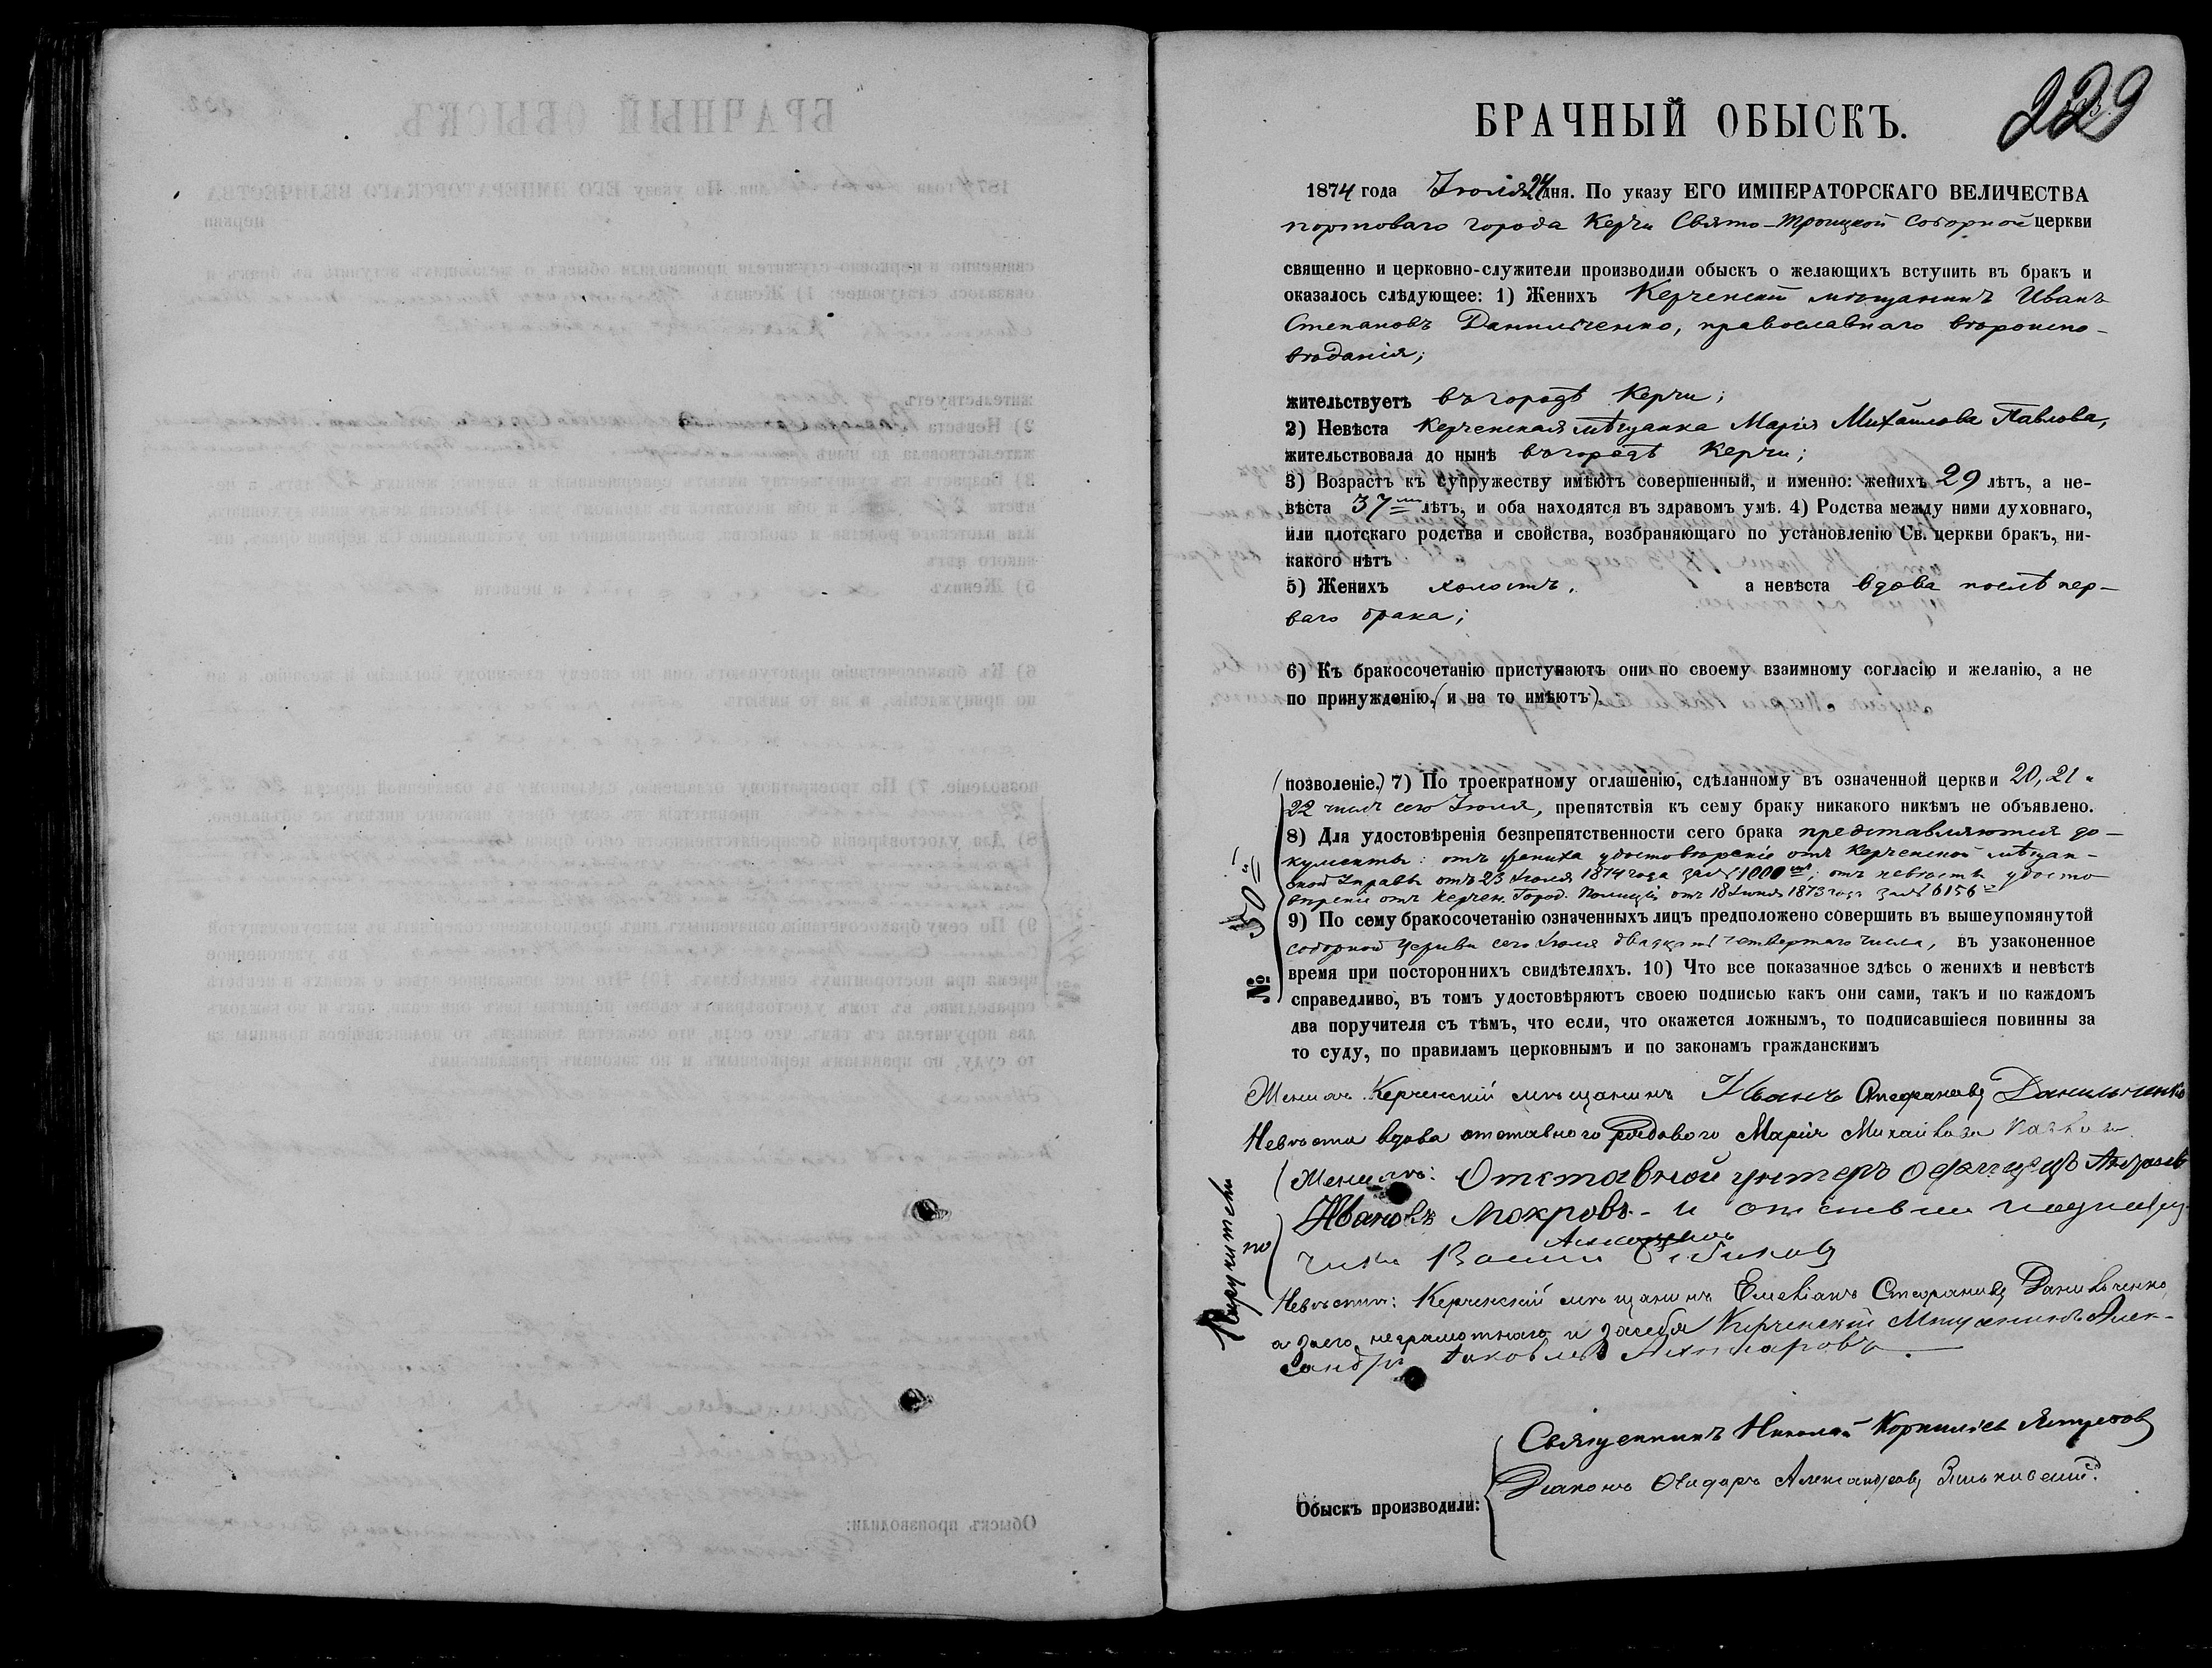 БРАЧНЫЙ ОБЫСКЪ.
229
1874 года Іюля 24 дня. По указу ЕГО ИМПЕРАТОРСКАГО ВЕЛИЧЕСТВА
портоваго города Керчи Свято-Троицкой соборной церкви
священно и церковно-служители производили обыскъ о желающихъ вступить въ бракъ и
оказалось слѣдующее: 1) Женихъ Керченскій мѣщанинъ Иванъ
Степановъ Данильченко, православнаго вѣроиспо-
вѣданія;
жительствуетъ въ городѣ Керчи;
2) Невѣста Керченская мѣщанка Марія Михайлова Павлова,
жительствовала до нынѣ въ городѣ Керчи;
3) Возрастъ къ супружеству имѣютъ совершенный, и именно: женихъ 29 лѣтъ, а не-
вѣста 37 ми лѣтъ, и оба находятся въ здравомъ умѣ. 4) Родства между ними духовнаго,
или плотскаго родства и свойства, возбраняющаго по установленію Св. церкви бракъ, ни-
какого нѣтъ
5) Женихъ холостъ, а невѣста вдова послѣ пер-
ваго брака;
6) Къ бракосочетанію приступаютъ они по своему взаимному согласію и желанію, а не
по принужденію, (и на то имѣютъ)
(позволеніе.) 7) По троекратному оглашенію, сдѣланному въ означенной церкви 20, 21 и
22 чисел сего Іюля, препятствія къ сему браку никакого никѣмъ не объявлено.
8) Для удостовѣренія безпрепятственности сего брака представляются до-
кументы: отъ жениха удостовѣреніе отъ Керченской мѣщан-
ской Управы отъ 23 Іюля 1874 года за № 1000; отъ невѣсты удосто
вѣреніе отъ Керчен. Город. Полиціи отъ 18 Іюня 1873 года за № 6156
9) По сему бракосочетанію означенныхъ лицъ предположено совершить въ вышеупомянутой
соборной церкви сего Іюля двадцать четвертаго числа, въ узаконенное
время при постороннихъ свидѣтеляхъ. 10) Что все показачное здѣсь о женихѣ и невѣстѣ
справедливо, въ томъ удостовѣряютъ своею подписью какъ они сами, такъ и по каждомъ
два поручителя съ тѣмъ, что если, что окажется ложнымъ, то подписавшіеся повинны за
то суду, по правиламъ церковнымъ и по законамъ гражданскимъ
№ 50
Женихъ Керченскій мѣщанинъ Иванъ Стефановъ Данильченко
Невѣста вдова отставного рядового Марія Михайлова Павлова
Поручители
по
Женихѣ: Отставной унтеръ офицеръ
Ивановъ Мокровъ - и
Невѣстѣ: Керченскій мѣщанинъ Емельянъ Стефановъ Данильченко,
а за его неграмотнаго и за себя Керченскій Мещенинъ Алек-
сандръ Яковлевъ
Обыскъ производили:
Священникъ Николай Корниліевъ Ястребовъ
Діаконъ Александровъ